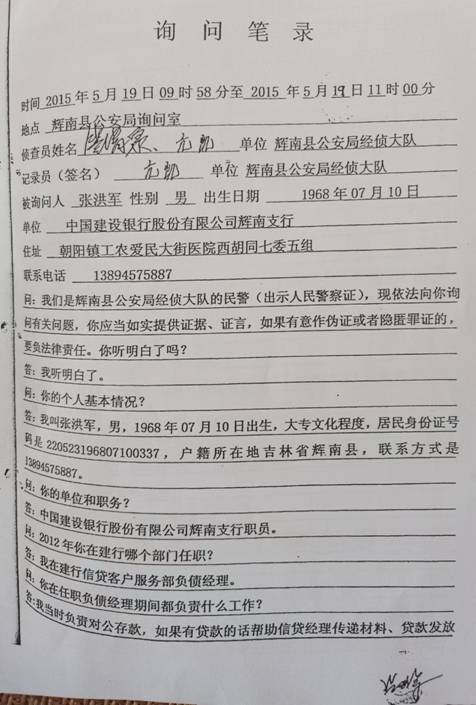 询问笔录
时间 2015 年 5 月 19 日 09 时 58 分至 2015 年 5 月 19 日 11 时 00 分
地点 辉南县公安局询问室
侦查员姓名 、 单位 辉南县公安局经侦大队
记录员（签名） 单位 辉南县公安局经侦大队
被询问人 张洪军 性别 男 出生日期 1968 年 07 月 10 日
单位 中国建设银行股份有限公司辉南支行
住址 朝阳镇工农爱民大街医院西胡同七委五组
联系电话 13894575887
问：我们是辉南县公安局经侦大队的民警（出示人民警察证），现依法向你询
问有关问题，你应当如实提供证据、证言，如果有意作伪证或者隐匿罪证的，
要负法律责任。你听明白了吗？
答：我听明白了。
问：你的个人基本情况？
答：我叫张洪军，男，1968 年 07 月 10 日出生，大专文化程度，居民身份证号
码是 220523196807100337，户籍所在地吉林省辉南县，联系方式是
13894575887。
问：你的单位和职务？
答：中国建设银行股份有限公司辉南支行职员。
问：2012 年你在建行哪个部门任职？
答：我在建行信贷客户服务部负债经理。
问：你在任职负债经理期间都负责什么工作？
答：我当时负责对公存款，如果有贷款的话帮助信贷经理传递材料、贷款发放